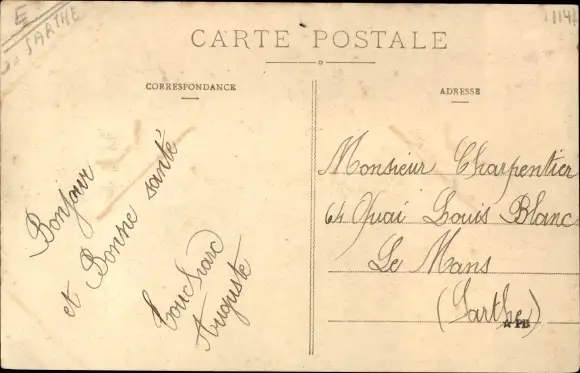 E
SARTHE
114
CARTE POSTALE
CORRESPONDANCE
ADRESSE
Bonjour
et Bonne santé
Touchard
Auguste
Monsieur Charpentier
64 Quai Louis Blanc
Le Mans
(Sarthe)
★PB